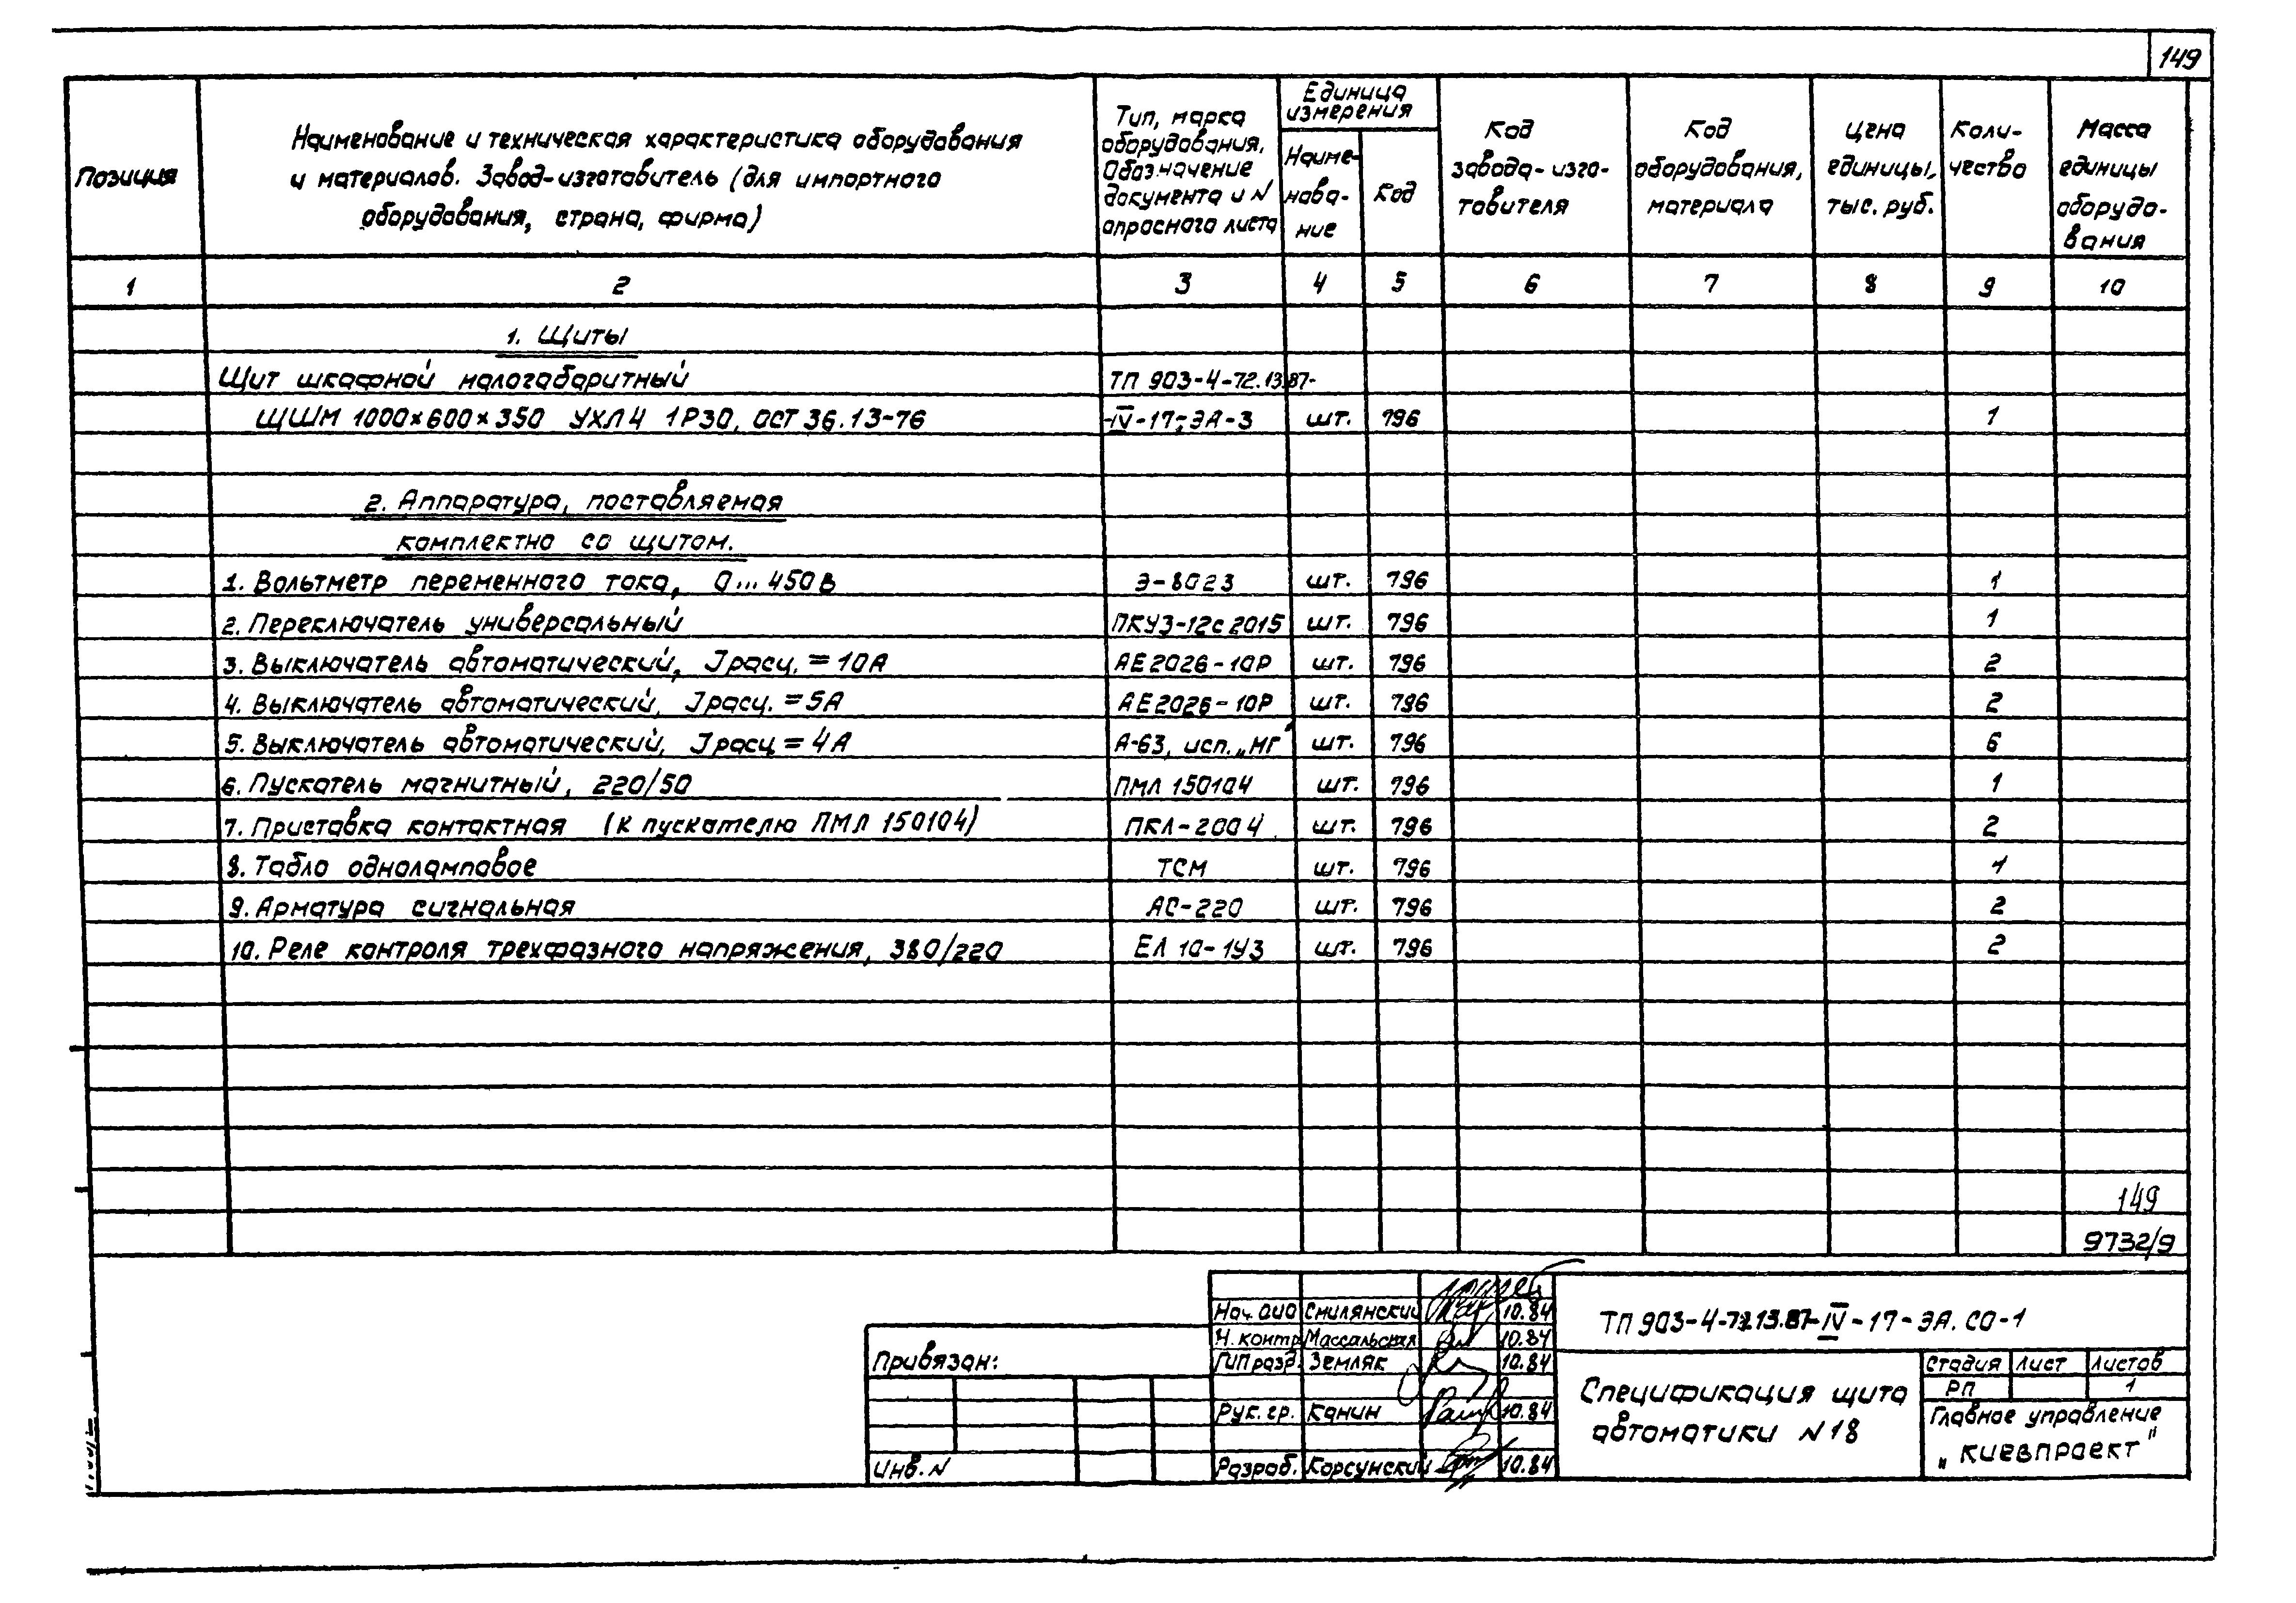 149
Позиция
Наименование и техническая характеристика оборудования
и материалов. Завод-изготовитель (для импортного
оборудования, страна, фирма)
Тип, марка
оборудования,
Обозначение
документа и N
опросного листа
Единица
измерения
Наиме-
нова-
ние
Код
Код
завода-изго-
товителя
Код
оборудования,
материала
Цена
единицы,
тыс. руб.
Коли-
чество
Масса
единицы
оборудо-
вания
1 2 3 4 5 6 7 8 9 10
1. Щиты
Щит шкафной малогабаритный ТП 903-4-72.13.87-
ЩШМ 1000×600×350 УХЛ4 1Р30, ОСТ 36.13-76 -IV-17-ЭА-3 шт. 796 1
2. Аппаратура, поставляемая
комплектно со щитом.
1. Вольтметр переменного тока, 0...450В Э-8023 шт. 796 1
2. Переключатель универсальный ПКУ3-12с2015 шт. 796 1
3. Выключатель автоматический, Iрасц. = 10А АЕ2026-10Р шт. 796 2
4. Выключатель автоматический, Iрасц. = 5А АЕ2026-10Р шт. 796 2
5. Выключатель автоматический, Iрасц = 4А А-63, исп. „МГ" шт. 796 6
6. Пускатель магнитный, 220/50 ПМЛ 150104 шт. 796 1
7. Приставка контактная (к пускателю ПМЛ 150104) ПКЛ-2004 шт. 796 2
8. Табло одноламповое ТСМ шт. 796 1
9. Арматура сигнальная АС-220 шт. 796 2
10. Реле контроля трехфазного напряжения, 380/220 ЕЛ 10-1У3 шт. 796 2
149
9732/9
Привязан:
Инв. N
Нач. ОИО Смилянский 10.84
Н. контр Массальская 10.84
ГИП разр. Земляк 10.84
Рук. гр. Канин 10.84
Разраб. Корсунский 10.84
ТП 903-4-72.13.87-IV-17-ЭА.СО-1
Спецификация щита
автоматики N18
Стадия Лист Листов
РП 1
Главное управление
„Киевпроект"